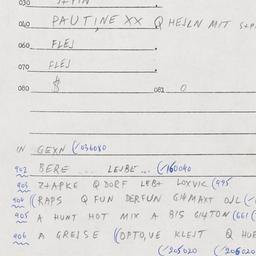 030
040 PAUTINE XX Q HEJLN MIT
060 FLEJ
070 FLEJ
080 $ 081 0
IN GEXN (036080
902 BERE ... LEJBE ... (160040
903 Z+APKE Q DORF LEB+ LOXVIC (495
904 ((RAPS Q FUN DERFUN GI4MAXT OJL (
905 A HUNT HOT MIX A BIS GI4TON (661 (
906 A GREISE (OPTO,VE KLEJT Q HUE
(205020 (206020